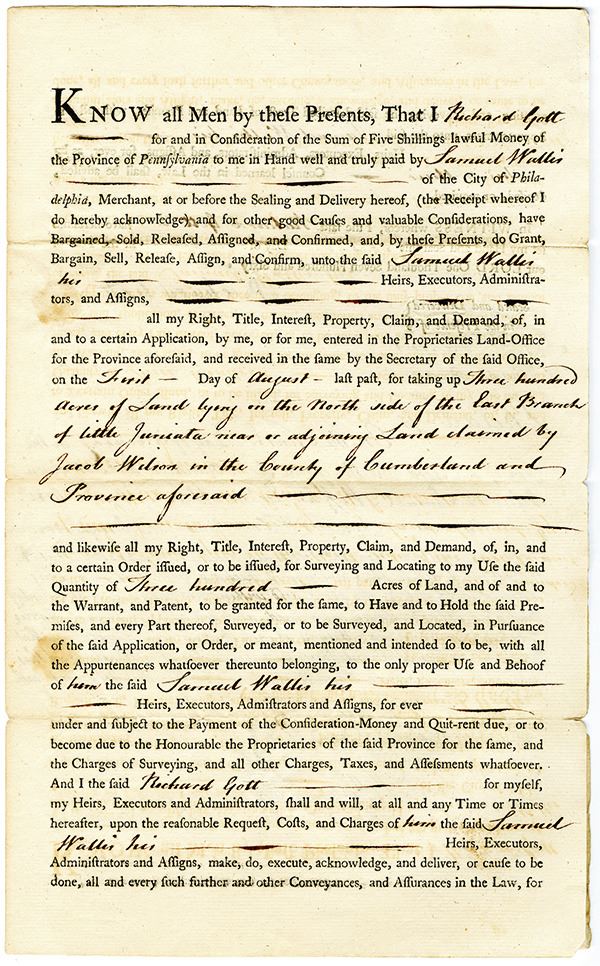 KNOW all Men by theſe Preſents, That I Richard Gott
for and in Conſideration of the Sum of Five Shillings lawful Money of
the Province of Pennſylvania to me in Hand well and truly paid by Samuel Wallis
of the City of Phila-
delphia, Merchant, at or before the Sealing and Delivery hereof, (the Receipt whereof I
do hereby acknowledge) and for other good Cauſes and valuable Conſiderations, have
Bargained, Sold, Releaſed, Aſſigned, and Confirmed, and, by theſe Preſents, do Grant,
Bargain, Sell, Releaſe, Aſſign, and Confirm, unto the ſaid Samuel Wallis
his Heirs, Executors, Adminiſtra-
tors, and Aſſigns,
all my Right, Title, Intereſt, Property, Claim, and Demand, of, in
and to a certain Application, by me, or for me, entered in the Proprietaries Land-Office
for the Province aforeſaid, and received in the ſame by the Secretary of the ſaid Office,
on the First Day of August laſt paſt, for taking up Three hundred
Acres of Land lying on the North side of the East Branch
of little Juniata near or adjoining Land claimed by
Jacob Wilson in the County of Cumberland and
Province aforesaid
and likewiſe all my Right, Title, Intereſt, Property, Claim, and Demand, of, in, and
to a certain Order iſſued, or to be iſſued, for Surveying and Locating to my Uſe the ſaid
Quantity of Three hundred Acres of Land, and of and to
the Warrant, and Patent, to be granted for the ſame, to Have and to Hold the ſaid Pre-
miſes, and every Part thereof, Surveyed, or to be Surveyed, and Located, in Purſuance
of the ſaid Application, or Order, or meant, mentioned and intended ſo to be, with all
the Appurtenances whatſoever thereunto belonging, to the only proper Uſe and Behoof
of him the ſaid Samuel Wallis his
Heirs, Executors, Admiſtrators and Aſſigns, for ever
under and ſubject to the Payment of the Conſideration-Money and Quit-rent due, or to
become due to the Honourable the Proprietaries of the ſaid Province for the ſame, and
the Charges of Surveying, and all other Charges, Taxes, and Aſſeſſments whatſoever.
And I the ſaid Richard Gott for myſelf,
my Heirs, Executors and Adminiſtrators, ſhall and will, at all and any Time or Times
hereafter, upon the reaſonable Requeſt, Coſts, and Charges of him the ſaid Samuel
Wallis his Heirs, Executors,
Adminiſtrators and Aſſigns, make, do, execute, acknowledge, and deliver, or cauſe to be
done, all and every ſuch further and other Conveyances, and Aſſurances in the Law, for